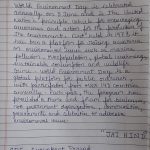 World Environment Day is celebrated
annually on 5 June and is the United
Nation's principle vehicle for encouraging
awareness and action for the protection of
the environment. First held in 1973, it
has been a platform for raising awareness
on environmental issues such as marine
pollution, overpopulation, global warming,
sustainable consumption and wildlife
crime. World Environment Day is a
global platform for public outreach
with participation from over 143 countries
annually. Each year, the program has
provided a theme and forum for businesses,
non government organizations, communities,
governments and celebrities to advocate
environmental causes.
"JAI HIND"